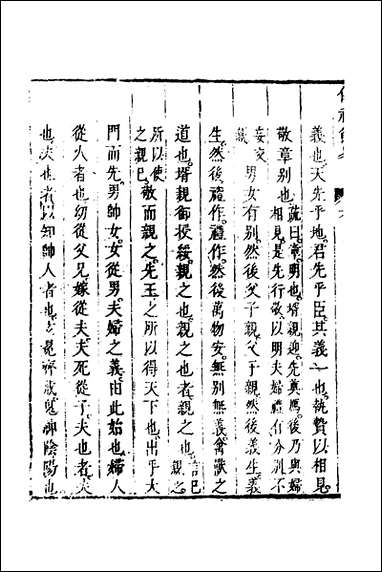 義也天先乎地君先乎臣其義一也執贄以相見
敬章別也
疏曰章明也壻親迎先奠鴈後乃與婦
相見是先行敬以明夫婦禮有分別不
妄交
男女有別然後父子親父子親然後義生義
生然後禮作禮作然後萬物安無別無義禽獸之
道也壻親御授綏親之也親之也者親之也
言己
親之
所以使
之親己
敬而親之先王之所以得天下也出乎大
門而先男帥女女從男夫婦之義由此始也婦人
從人者也幼從父兄嫁從夫夫死從子夫也者夫
也夫也者以知帥人者也玄冕齊戒鬼神陰陽也